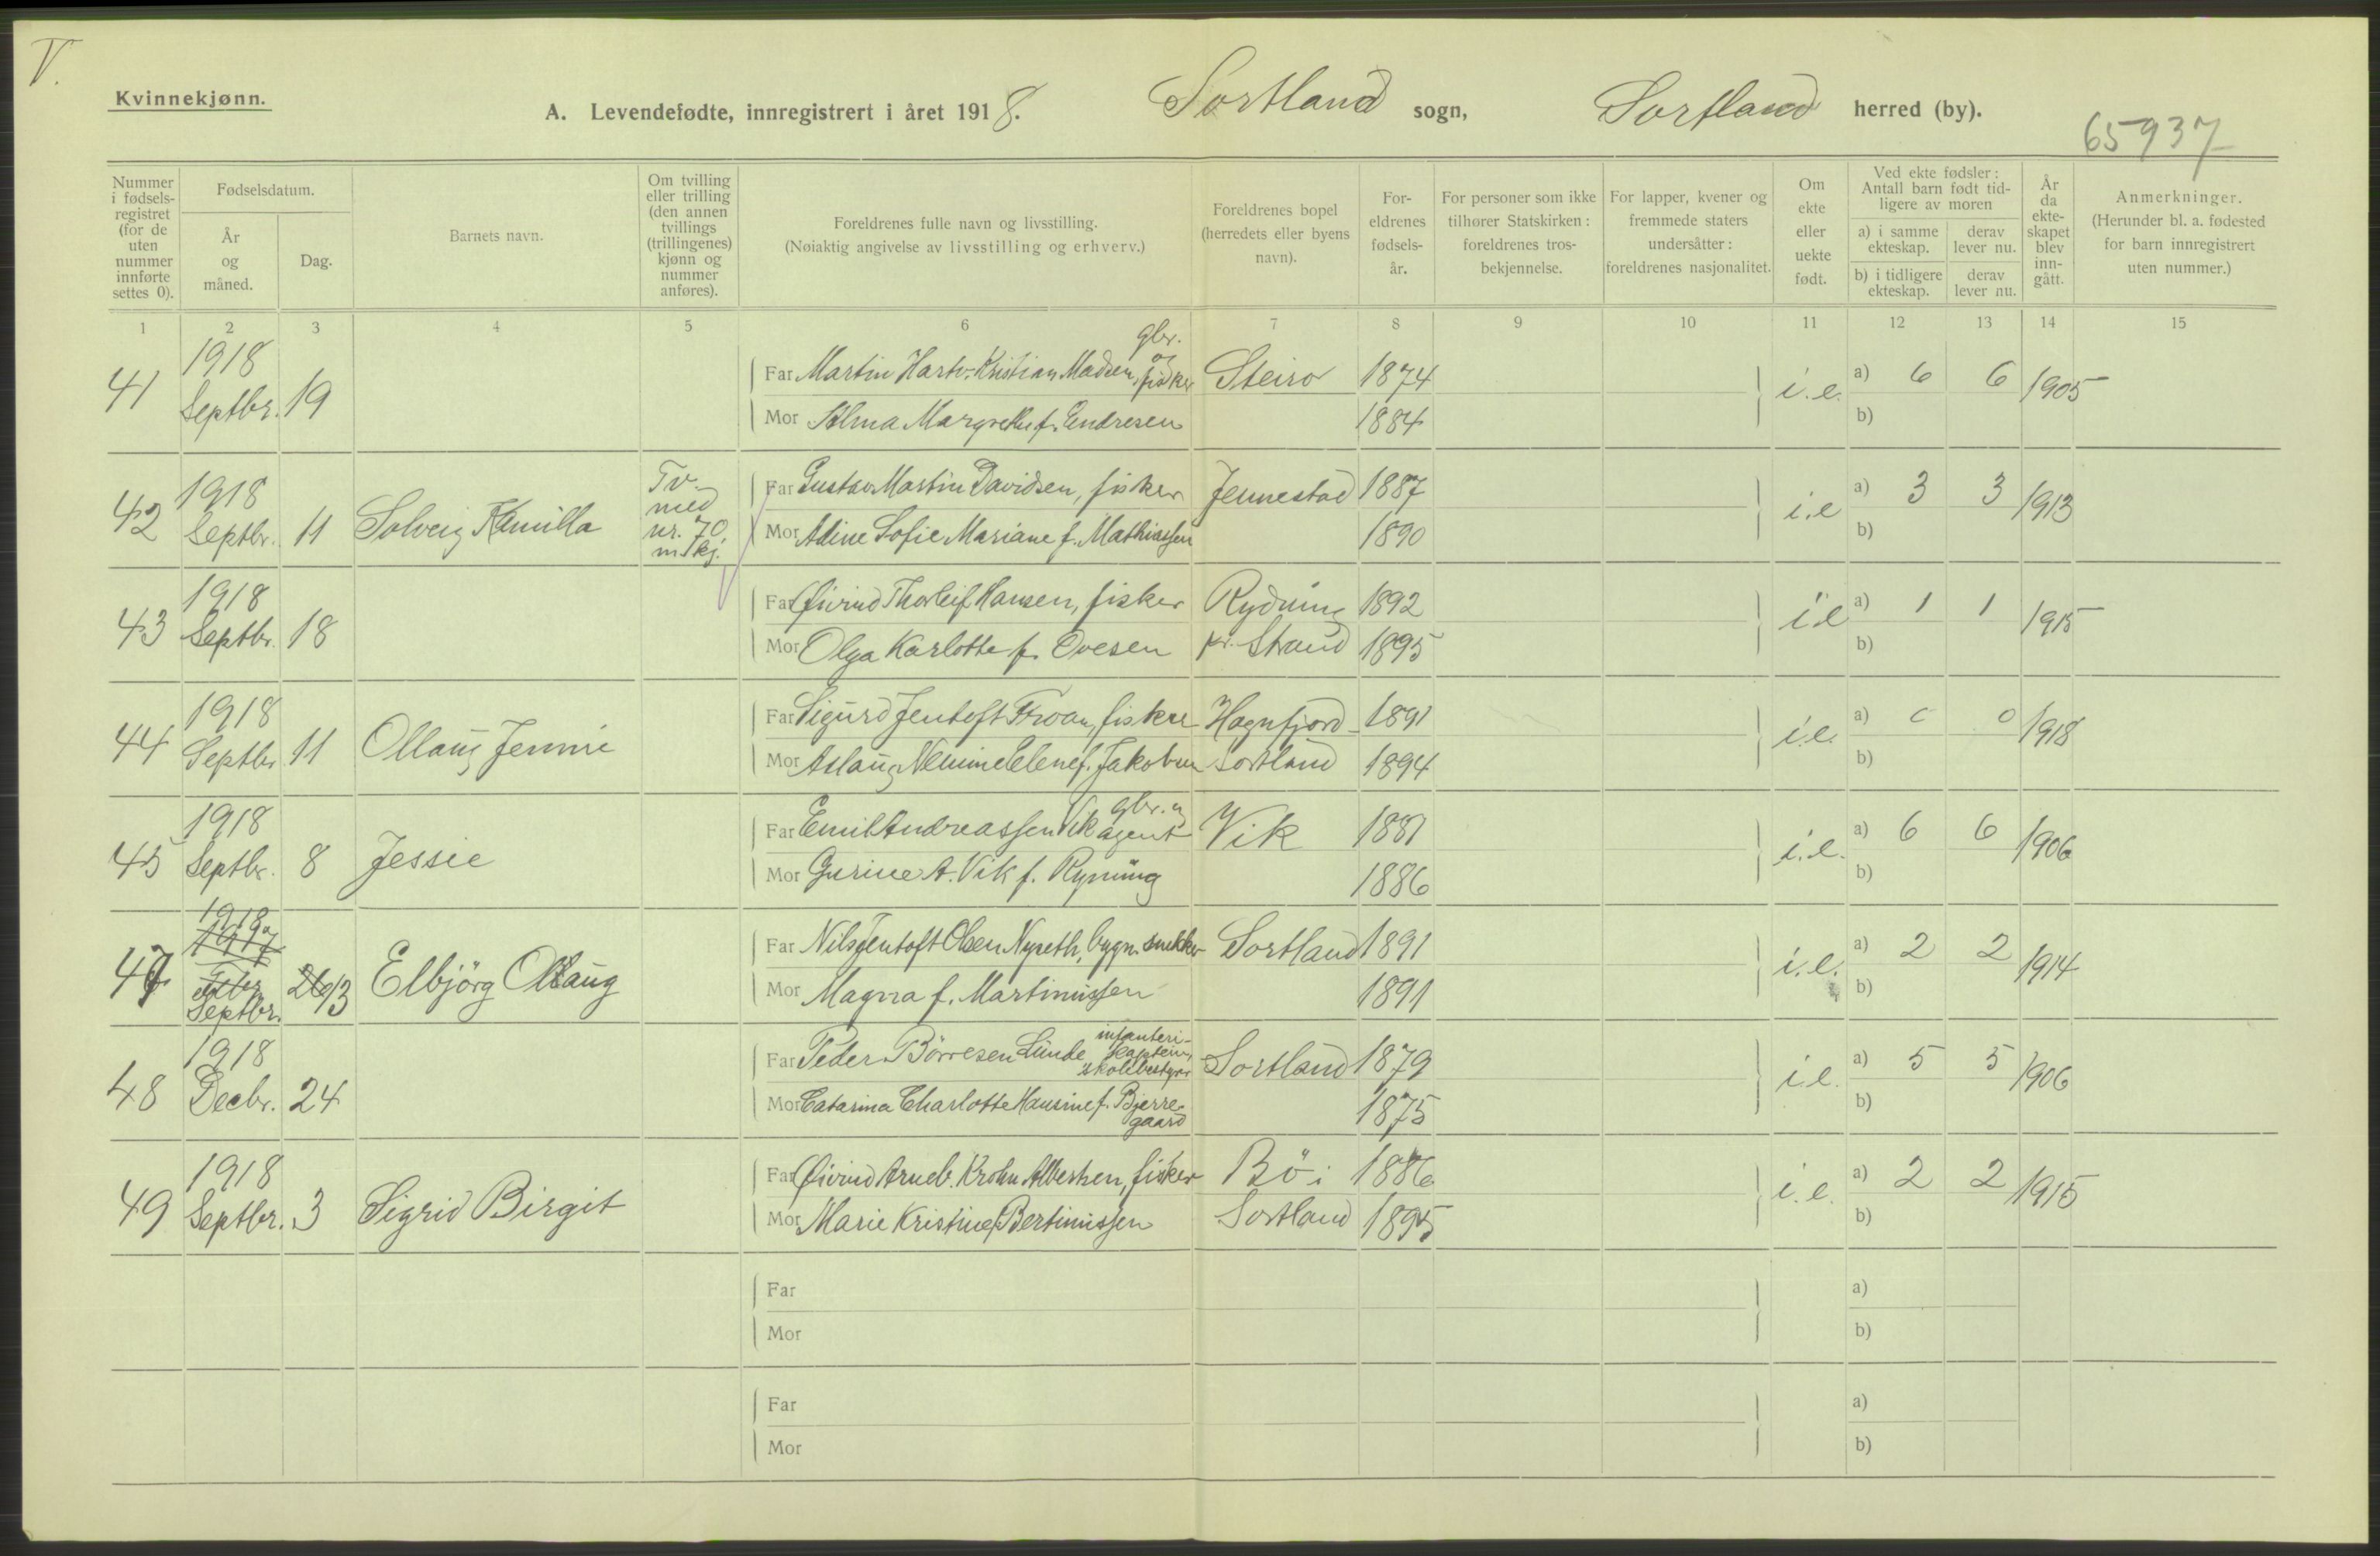 V.
Kvinnekjønn.
A. Levendefødte, innregistrert i året 1918. Sortland sogn, Sortland herred (by).
65937
Nummer i fødsels-registret (for de uten nummer innførte settes 0).
Fødselsdatum.
År og måned.
Dag.
Barnets navn.
Om tvilling eller trilling (den annen tvillings (trillingenes) kjønn og nummer anføres).
Foreldrenes fulle navn og livsstilling.
(Nøiaktig angivelse av livsstilling og erhverv.)
Foreldrenes bopel (herredets eller byens navn).
For-eldrenes fødsels-år.
For personer som ikke tilhører Statskirken: foreldrenes tros-bekjennelse.
For lapper, kvener og fremmede staters undersåtter: foreldrenes nasjonalitet.
Om ekte eller uekte født.
Ved ekte fødsler: Antall barn født tid-ligere av moren
a) i samme ekteskap.
derav lever nu.
b) i tidligere ekteskap.
derav lever nu.
År da ekte-skapet blev inn-gått.
Anmerkninger.
(Herunder bl. a. fødested for barn innregistrert uten nummer.)
1 2 3 4 5 6 7 8 9 10 11 12 13 14 15
41 1918 Septbr. 19 Far Martin Hartv. Kristian Madsen, gbr. og fisker Steiro 1874 i.e. a) 6 6 1905
Mor Alma Margrethe f. Endresen 1884 b)
42 1918 Septbr. 11 Solveig Kamilla Tv. med nr. 70, m/kj. Far Gustav Martin Davidsen, fisker Jennestad 1887 i.e a) 3 3 1913
Mor Adine Sofie Mariane f. Mathiassen 1890 b)
43 1918 Septbr. 18 Far Øivind Thorleif Hansen, fisker Rydning 1892 i.e a) 1 1 1915
Mor Olga Karlotte f. Ovesen pr. Strand 1895 b)
44 1918 Septbr 11 Ollaug Jennie Far Sigurd Jentoft Froan, fisker Hognfjord 1891 i.e. a) 0 0 1918
Mor Aslaug f. Jakobsen Sortland 1894 b)
45 1918 Septbr. 8 Jessie Far Emil Andreassen Vik gbr. og agent Vik 1881 i.e. a) 6 6 1906
Mor Gurine A. Vik f. Ryning 1886 b)
47 1918 1917 Septbr. 26 13 Elbjörg Ollaug Far Nils Jentoft Olsen Nyseth, bygn. snekker Sortland 1891 i.e. a) 2 2 1914
Mor Magna f. Martinussen 1891 b)
48 1918 Decbr. 24 Far Peder Börresen Lunde infanteri-kaptein, skolebestyrer Sortland 1879 i.e. a) 5 5 1906
Mor Catarina Charlotte Hansine f. Bjerregaard 1875 b)
49 1918 Septbr. 3 Sigrid Birgit Far Øivind Arneb. Krohn Albertsen, fisker Bö i 1886 i.e. a) 2 2 1915
Mor Marie Kristine f. Bertinussen Sortland 1895 b)
Far a)
Mor b)
Far a)
Mor b)